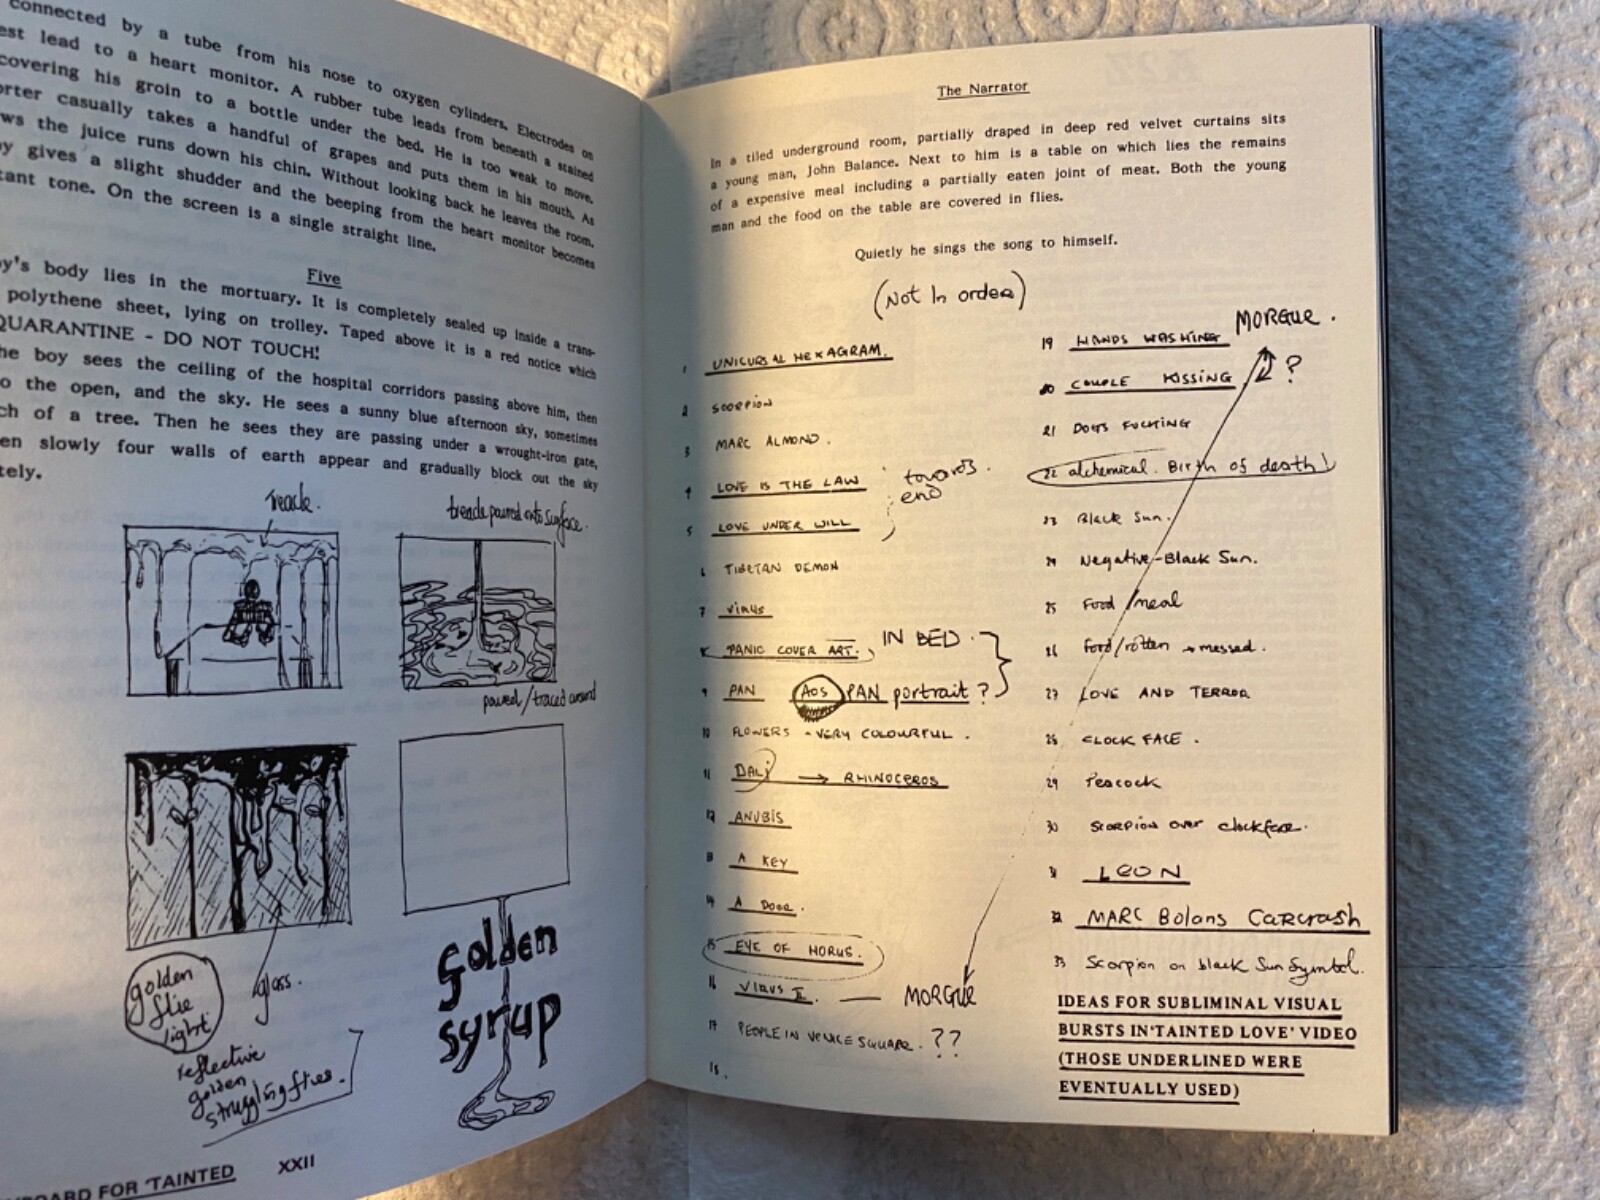 connected by a tube from his nose to oxygen cylinders. Electrodes on
est lead to a heart monitor. A rubber tube leads from beneath a stained
covering his groin to a bottle under the bed. He is too weak to move.
orter casually takes a handful of grapes and puts them in his mouth. As
ws the juice runs down his chin. Without looking back he leaves the room.
y gives a slight shudder and the beeping from the heart monitor becomes
tant tone. On the screen is a single straight line.
Five
y's body lies in the mortuary. It is completely sealed up inside a trans-
polythene sheet, lying on trolley. Taped above it is a red notice which
QUARANTINE - DO NOT TOUCH!
he boy sees the ceiling of the hospital corridors passing above him, then
o the open, and the sky. He sees a sunny blue afternoon sky, sometimes
ch of a tree. Then he sees they are passing under a wrought-iron gate,
en slowly four walls of earth appear and gradually block out the sky
tely.
treacle.
treacle poured onto surface.
poured/traced around
golden
flie
light
glass.
reflective
golden
struggling flies.
golden
syrup
BOARD FOR 'TAINTED
XXII
The Narrator
In a tiled underground room, partially draped in deep red velvet curtains sits
a young man, John Balance. Next to him is a table on which lies the remains
of a expensive meal including a partially eaten joint of meat. Both the young
man and the food on the table are covered in flies.
Quietly he sings the song to himself.
(Not In order)
1 UNICURSAL HEXAGRAM.
2 SCORPION
3 MARC ALMOND.
4 LOVE IS THE LAW
5 LOVE UNDER WILL
towards
end
6 TIBETAN DEMON
7 VIRUS
8 PANIC COVER ART. IN BED.
9 PAN AOS PAN portrait?
10 FLOWERS - VERY COLOURFUL.
11 DALI → RHINOCEROS
12 ANUBIS
13 A KEY
14 A DOOR.
15 EYE OF HORUS.
16 VIRUS II. — MORGUE
17 PEOPLE IN VENICE SQUARE. ??
18.
19 HANDS WASHING MORGUE.
20 COUPLE KISSING ?
21 DOGS FUCKING
22 alchemical. Birth of death!
23 Black Sun.
24 Negative-Black Sun.
25 Food/meal
26 Food/rotten → messed.
27 LOVE AND TERROR
28 CLOCK FACE.
29 Peacock
30 SCORPION over clockface.
31 LEON
32 MARC Bolans Carcrash
33 Scorpion on black Sun Symbol.
IDEAS FOR SUBLIMINAL VISUAL
BURSTS IN 'TAINTED LOVE' VIDEO
(THOSE UNDERLINED WERE
EVENTUALLY USED)